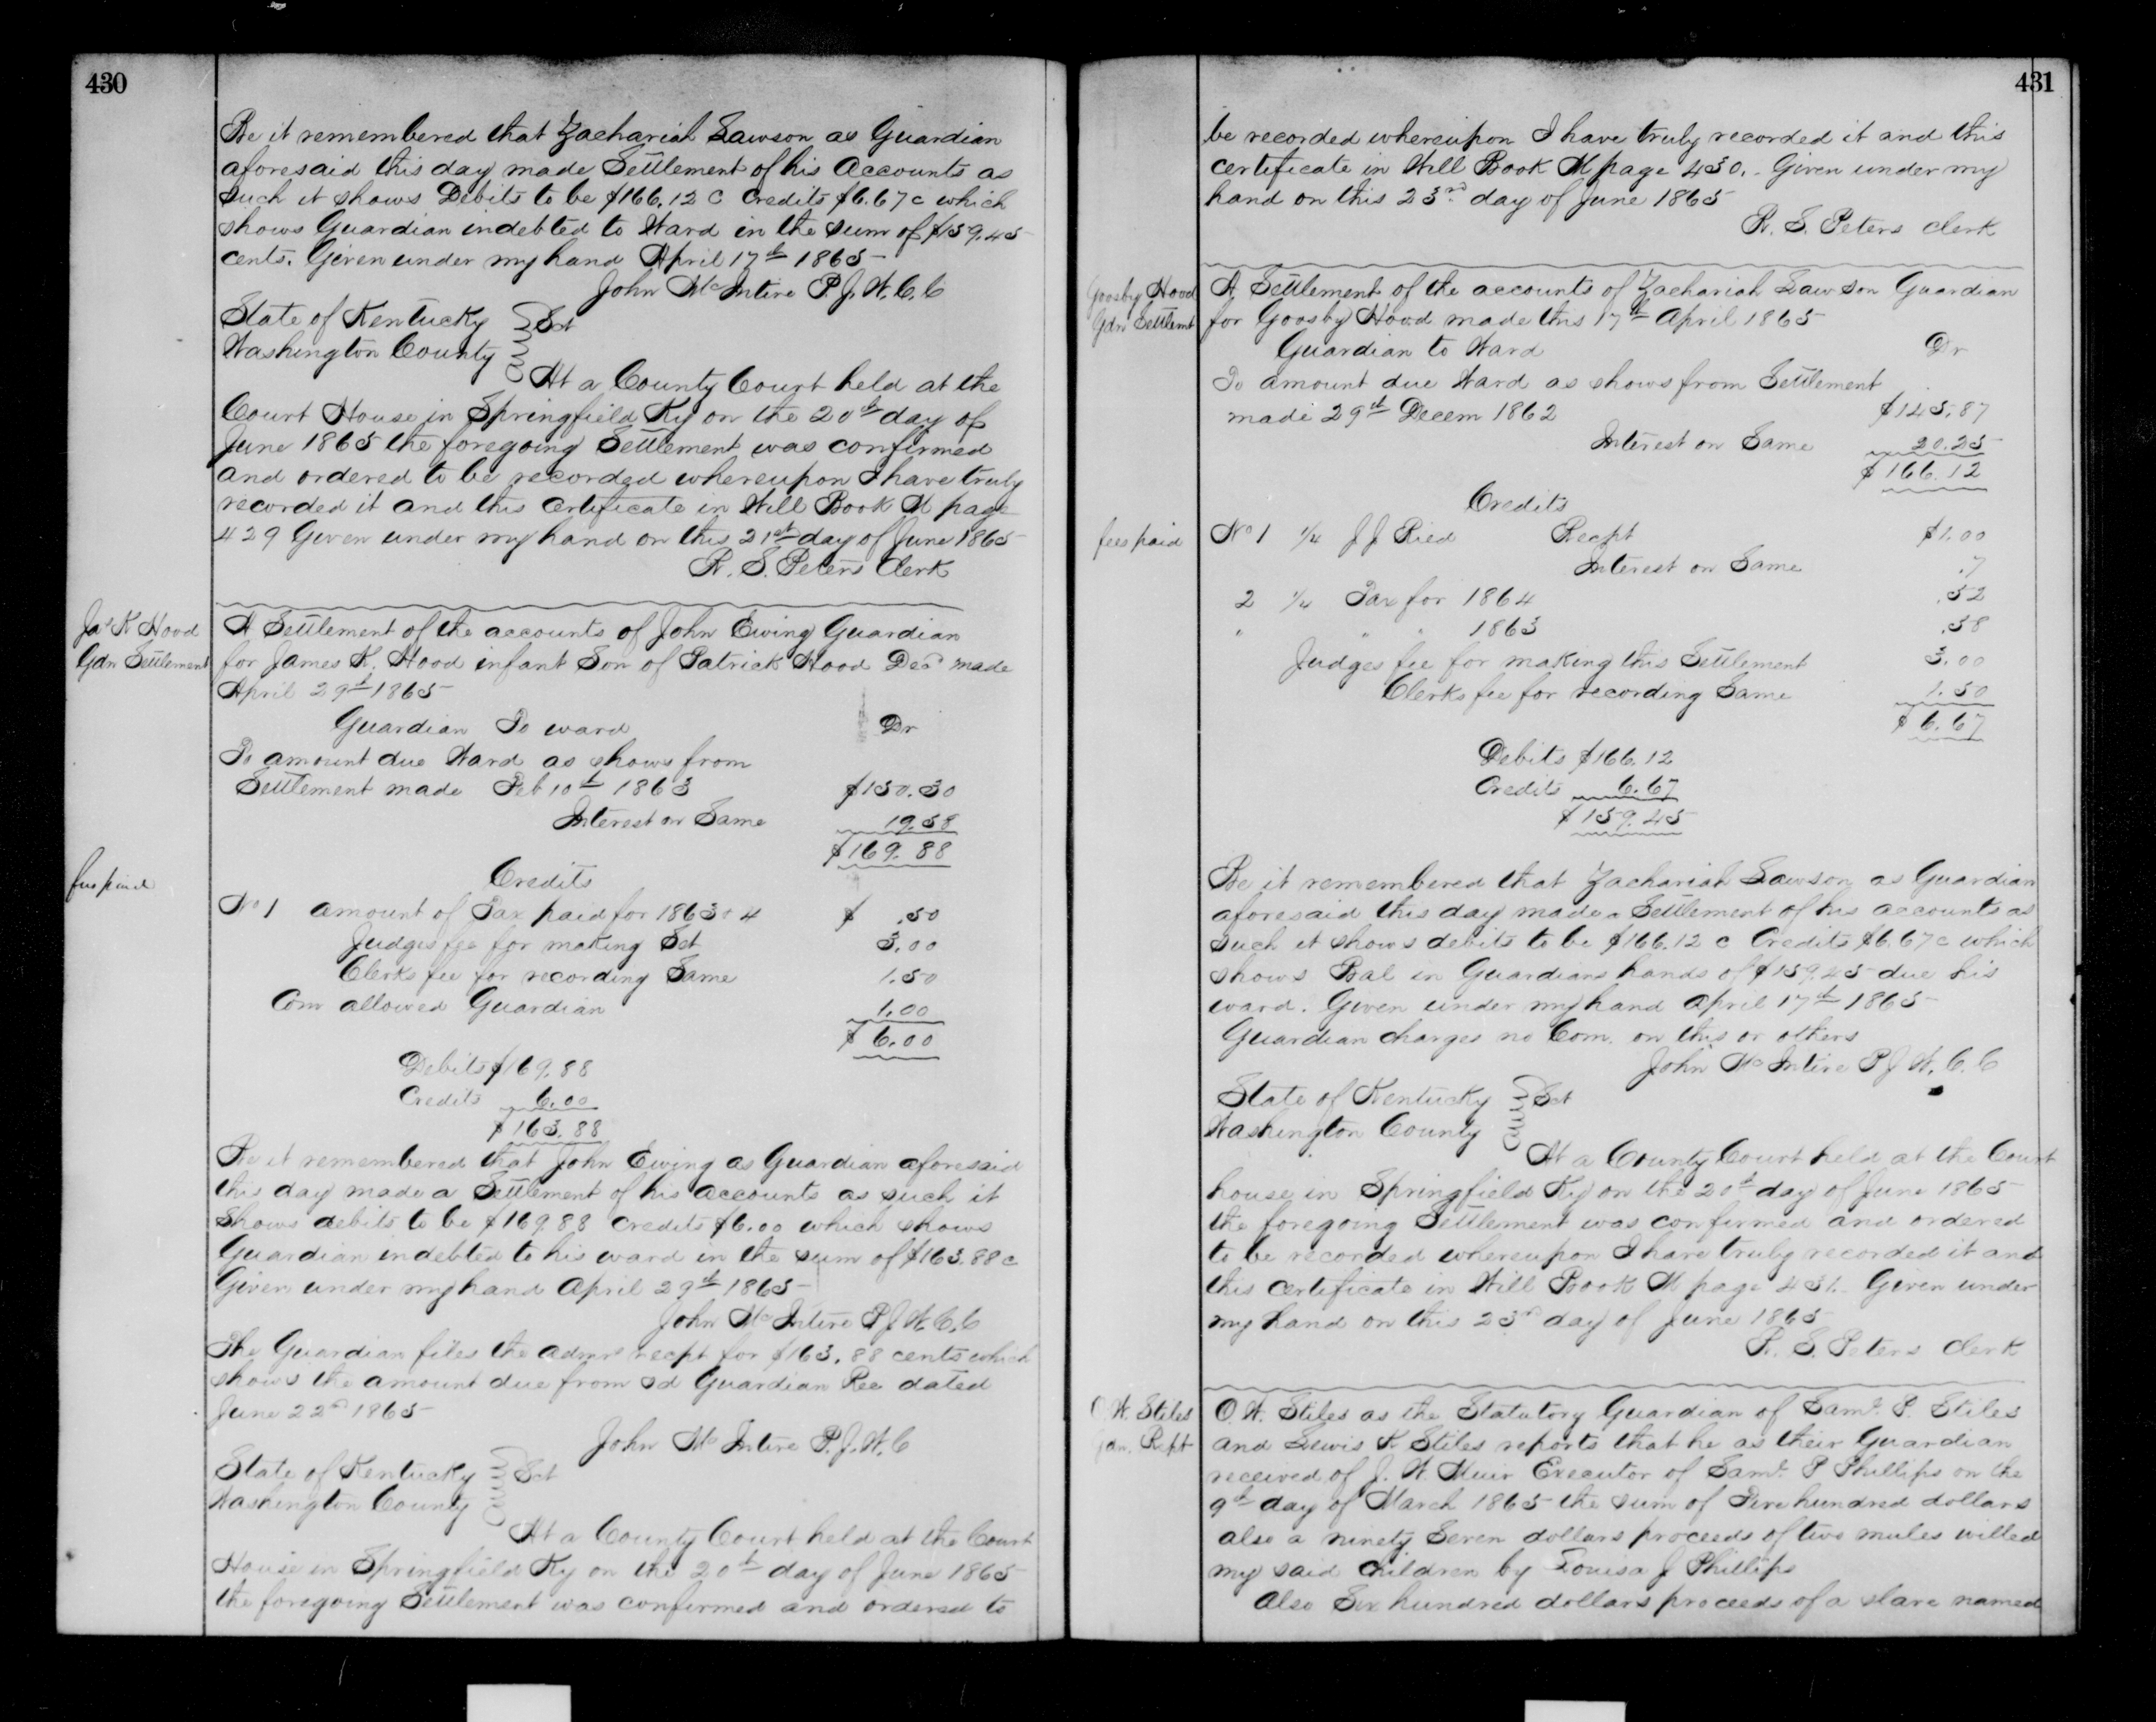 430
Be it remembered that Zachariah Lawson as Guardian
aforesaid this day made Settlement of his Accounts as
Such it shows Debits to be $166.12 c Credits $6.67 c which
shows Guardian indebted to Ward in the sum of $159.45
cents. Given under my hand April 17th 1865
John McIntire P. J. W. C. C
State of Kentucky
Washington County
Sct
At a County Court held at the
Court House in Springfield Ky on the 20th day of
June 1865 the foregoing Settlement was confirmed
and ordered to be recorded whereupon I have truly
recorded it and this certificate in Will Book M page
429 Given under my hand on this 21st day of June 1865
R. S. Peters Clerk
Jas K Hood
Gdn Settlement
A Settlement of the accounts of John Ewing Guardian
for James K. Hood infant Son of Patrick Hood Decd made
April 29th 1865
Guardian To ward Dr
To amount due Ward as shows from
Settlement made Feb 10th 1863 $150.30
Interest on Same 19.58
$169.88
fees paid
Credits
No 1 amount of Tax paid for 1863 & 4 $ .50
Judges fee for making Set 3.00
Clerks fee for recording Same 1.50
Com allowed Guardian 1.00
$ 6.00
Debits $169.88
Credits 6.00
$163.88
Be it remembered that John Ewing as Guardian aforesaid
this day made a Settlement of his accounts as such it
Shows debits to be $169.88 credits $6.00 which shows
Guardian indebted to his ward in the sum of $163.88 c
Given under my hand April 29th 1865
John McIntire P J W. C. C
The Guardian files the Admrs recpt for $163.88 cents which
shows the amount due from sd Guardian Rec dated
June 22nd 1865
John McIntire P. J. W. C
State of Kentucky
Washington County
Sct
At a County Court held at the Court
House in Springfield Ky on the 20th day of June 1865
the foregoing Settlement was confirmed and ordered to
431
be recorded whereupon I have truly recorded it and this
certificate in Will Book M page 430. Given under my
hand on this 23rd day of June 1865
R. S. Peters Clerk
Goosby Hood
Gdn Settlemt
A Settlement of the accounts of Zachariah Lawson Guardian
for Goosby Hood made this 17th April 1865
Guardian to Ward Dr
To amount due Ward as shows from Settlement
made 29th Decem 1862 $145.87
Interest on Same 20.25
$166.12
Credits
fees paid
No 1 1/4 J J Ried Recpt $1.00
Interest on Same .7
2 1/4 Tax for 1864 .52
" " " 1863 .58
Judges fee for making this Settlement 3.00
Clerks fee for recording Same 1.50
$ 6.67
Debits $166.12
Credits 6.67
$159.45
Be it remembered that Zachariah Lawson as Guardian
aforesaid this day made a Settlement of his accounts as
such it shows debits to be $166.12 c Credits $6.67 c which
shows Bal in Guardians hands of $159.45 due his
ward. Given under my hand April 17th 1865
Guardian charges no Com. on this or others
John McIntire P J W. C. C
State of Kentucky
Washington County
Sct
At a County Court held at the Court
house in Springfield Ky on the 20th day of June 1865
the foregoing Settlement was confirmed and ordered
to be recorded whereupon I have truly recorded it and
this certificate in Will Book M page 431. Given under
my hand on this 23rd day of June 1865
R. S. Peters Clerk
O. W. Stiles
Gdn. Rept
O. W. Stiles as the Statutory Guardian of Saml. P. Stiles
and Lewis K Stiles reports that he as their Guardian
received of J. W. Muir Executor of Saml. P Phillips on the
9th day of March 1865 the sum of Five hundred dollars
also a ninety Seven dollars proceeds of two mules willed
my said children by Louisa J Phillips
Also Six hundred dollars proceeds of a slave named